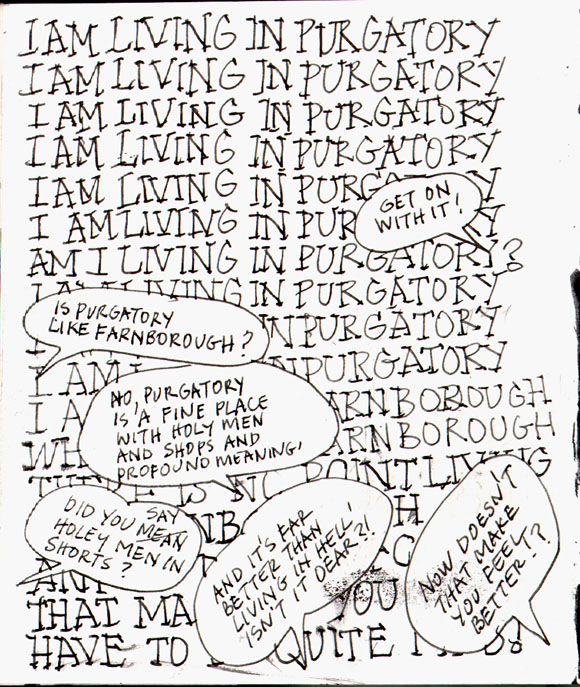 I AM LIVING IN PURGATORY
I AM LIVING IN PURGATORY
I AM LIVING IN PURGATORY
I AM LIVING IN PURGATORY
I AM LIVING IN PURG Y
GET ON
WITH IT!
I AM LIVING IN PUR Y
AM I LIVING IN PURGATORY?
LIVING IN PURGATORY
IS PURGATORY
LIKE FARNBOROUGH?
IN PURGATORY
I AM IN PURGATORY
NO, PURGATORY
IS A FINE PLACE
WITH HOLY MEN
AND SHOPS AND
PROFOUND MEANING,
I A ARNBOROUGH
WH ARNBOROUGH
IS NO POINT LIVING
DID YOU SAY
MEAN
HOLEY MEN IN
SHORTS?
NB H
AND IT'S FAR
BETTER THAN
LIVING IN HELL,
ISN'T IT DEAR?!
NOW DOESN'T IT
THAT MAKE
YOU FEEL
BETTER!?
THAT MA YOU
HAVE TO QUITE